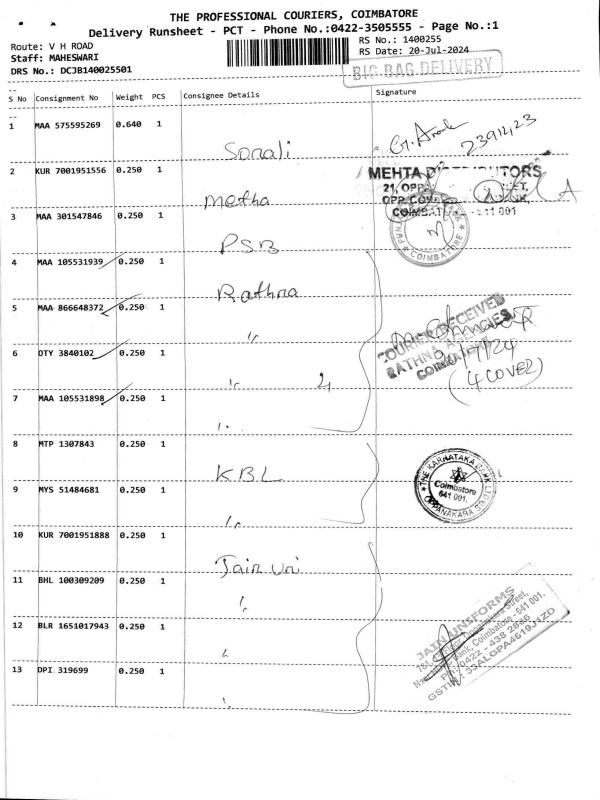 THE PROFESSIONAL COURIERS, COIMBATORE
Delivery Runsheet - PCT - Phone No.:0422-3505555 - Page No.:1
Route: V H ROAD
Staff: MAHESWARI
DRS No.: DCJB140025501
RS No.: 1400255
RS Date: 20-Jul-2024
BIG BAG DELIVERY
S No Consignment No Weight PCS Consignee Details Signature
1 MAA 575595269 0.640 1 Sonali
2391423
2 KUR 7001951556 0.250 1 Metha
MEHTA DISTRIBUTORS
21, OPP
COIMBATORE - 641 001
3 MAA 301547846 0.250 1 PSB
COIMBATORE
4 MAA 105531939 0.250 1 Rathna
5 MAA 866648372 0.250 1 "
COURIER RECEIVED
RATHNA AGENCIES
6 OTY 3840102 0.250 1 " 4
(4 COVER)
7 MAA 105531898 0.250 1 "
8 MTP 1307843 0.250 1 KBL
THE KARNATAKA BANK LTD
Coimbatore
641 001.
OPPANAKARA STREET
9 MYS 51484681 0.250 1 "
10 KUR 7001951888 0.250 1 Jain Uni
11 BHL 100309209 0.250 1 "
JAIN UNIFORMS
Bank, Coimbatore - 641 001.
12 BLR 1651017943 0.250 1 "
13 DPI 319699 0.250 1 "